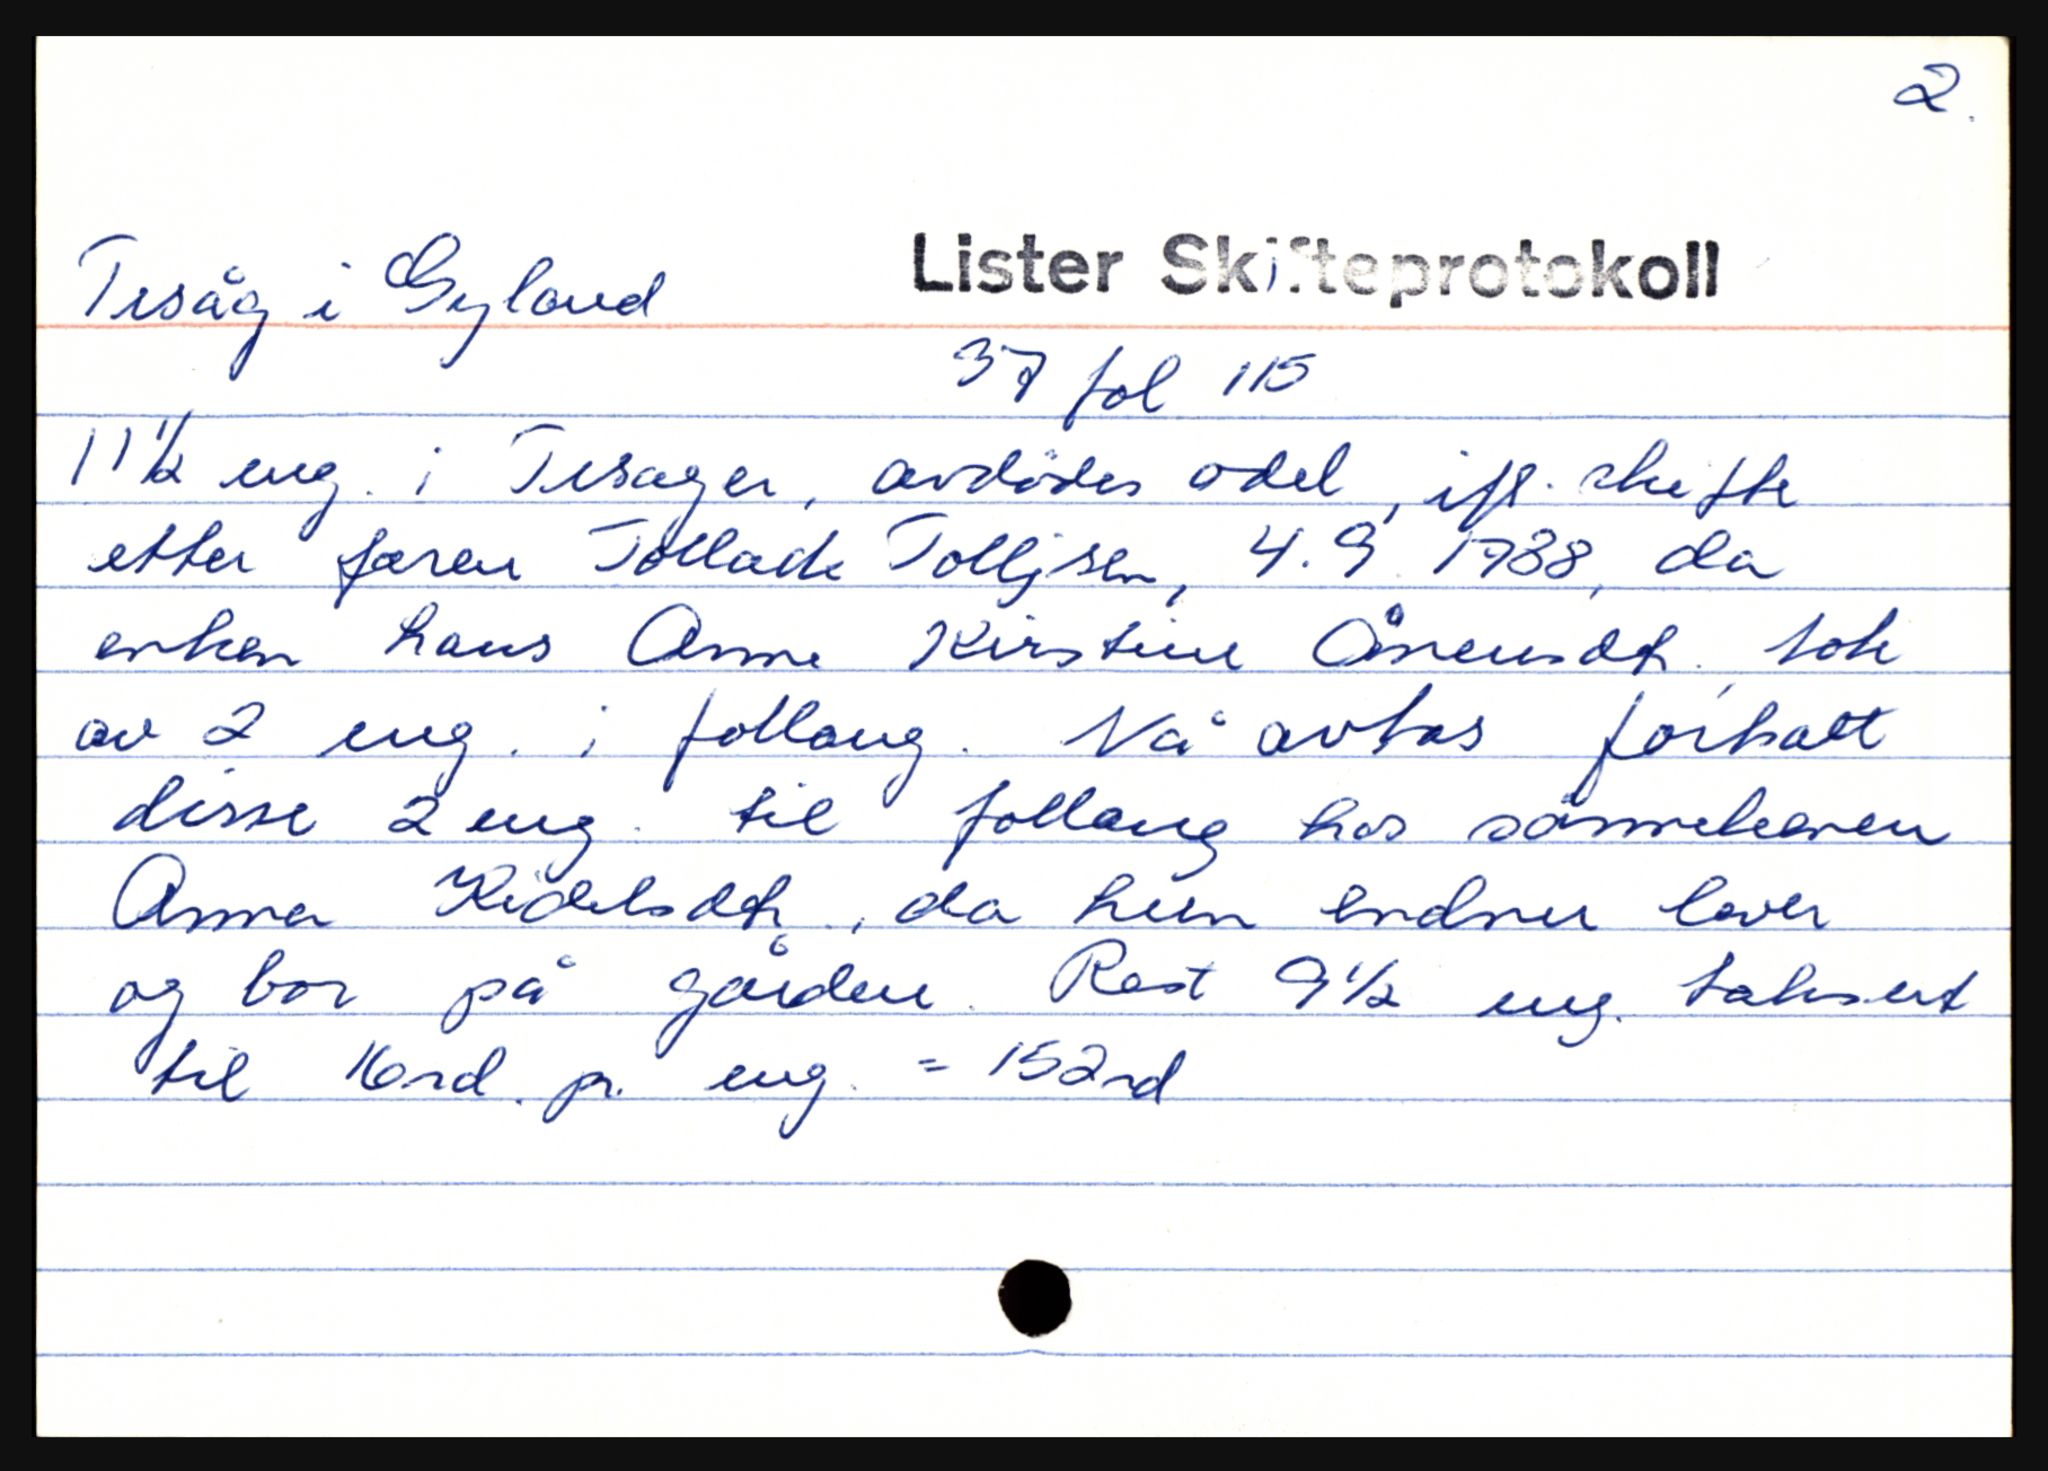 2.
Tesåg i Gyland
Lister Skifteprotokoll
37 fol 115
11 1/2 eng. i Tesager, avdödes odel, ifl. skifte
etter faren Tollack Tolljsen, 4.9 1788, da
enken hans Anne Kirstine Ånensdtr. tok
av 2 eng. i follaug. Nå avtas forhatt
disse 2 eng. til follaug hos
Anna Kidelsdtr, da hun endnu lever
og bor på gården. Rest 9 1/2 eng. taksert
til 16 rd. pr. eng. = 152 rd